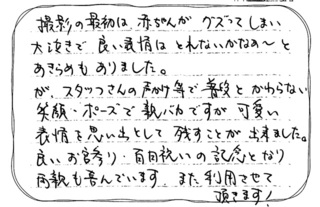 撮影の最初は、赤ちゃんがグズってしまい
大泣きで良い表情はとれないかなぁ〜と
あきらめもありました。
が、スタッフさんの声かけ等で普段とかわらない
笑顔・ポーズで親バカですが可愛い
表情を思い出として残すことが出来ました。
良いお宮参り・百日祝いの記念となり
両親も喜んでいます。また利用させて
頂きます!